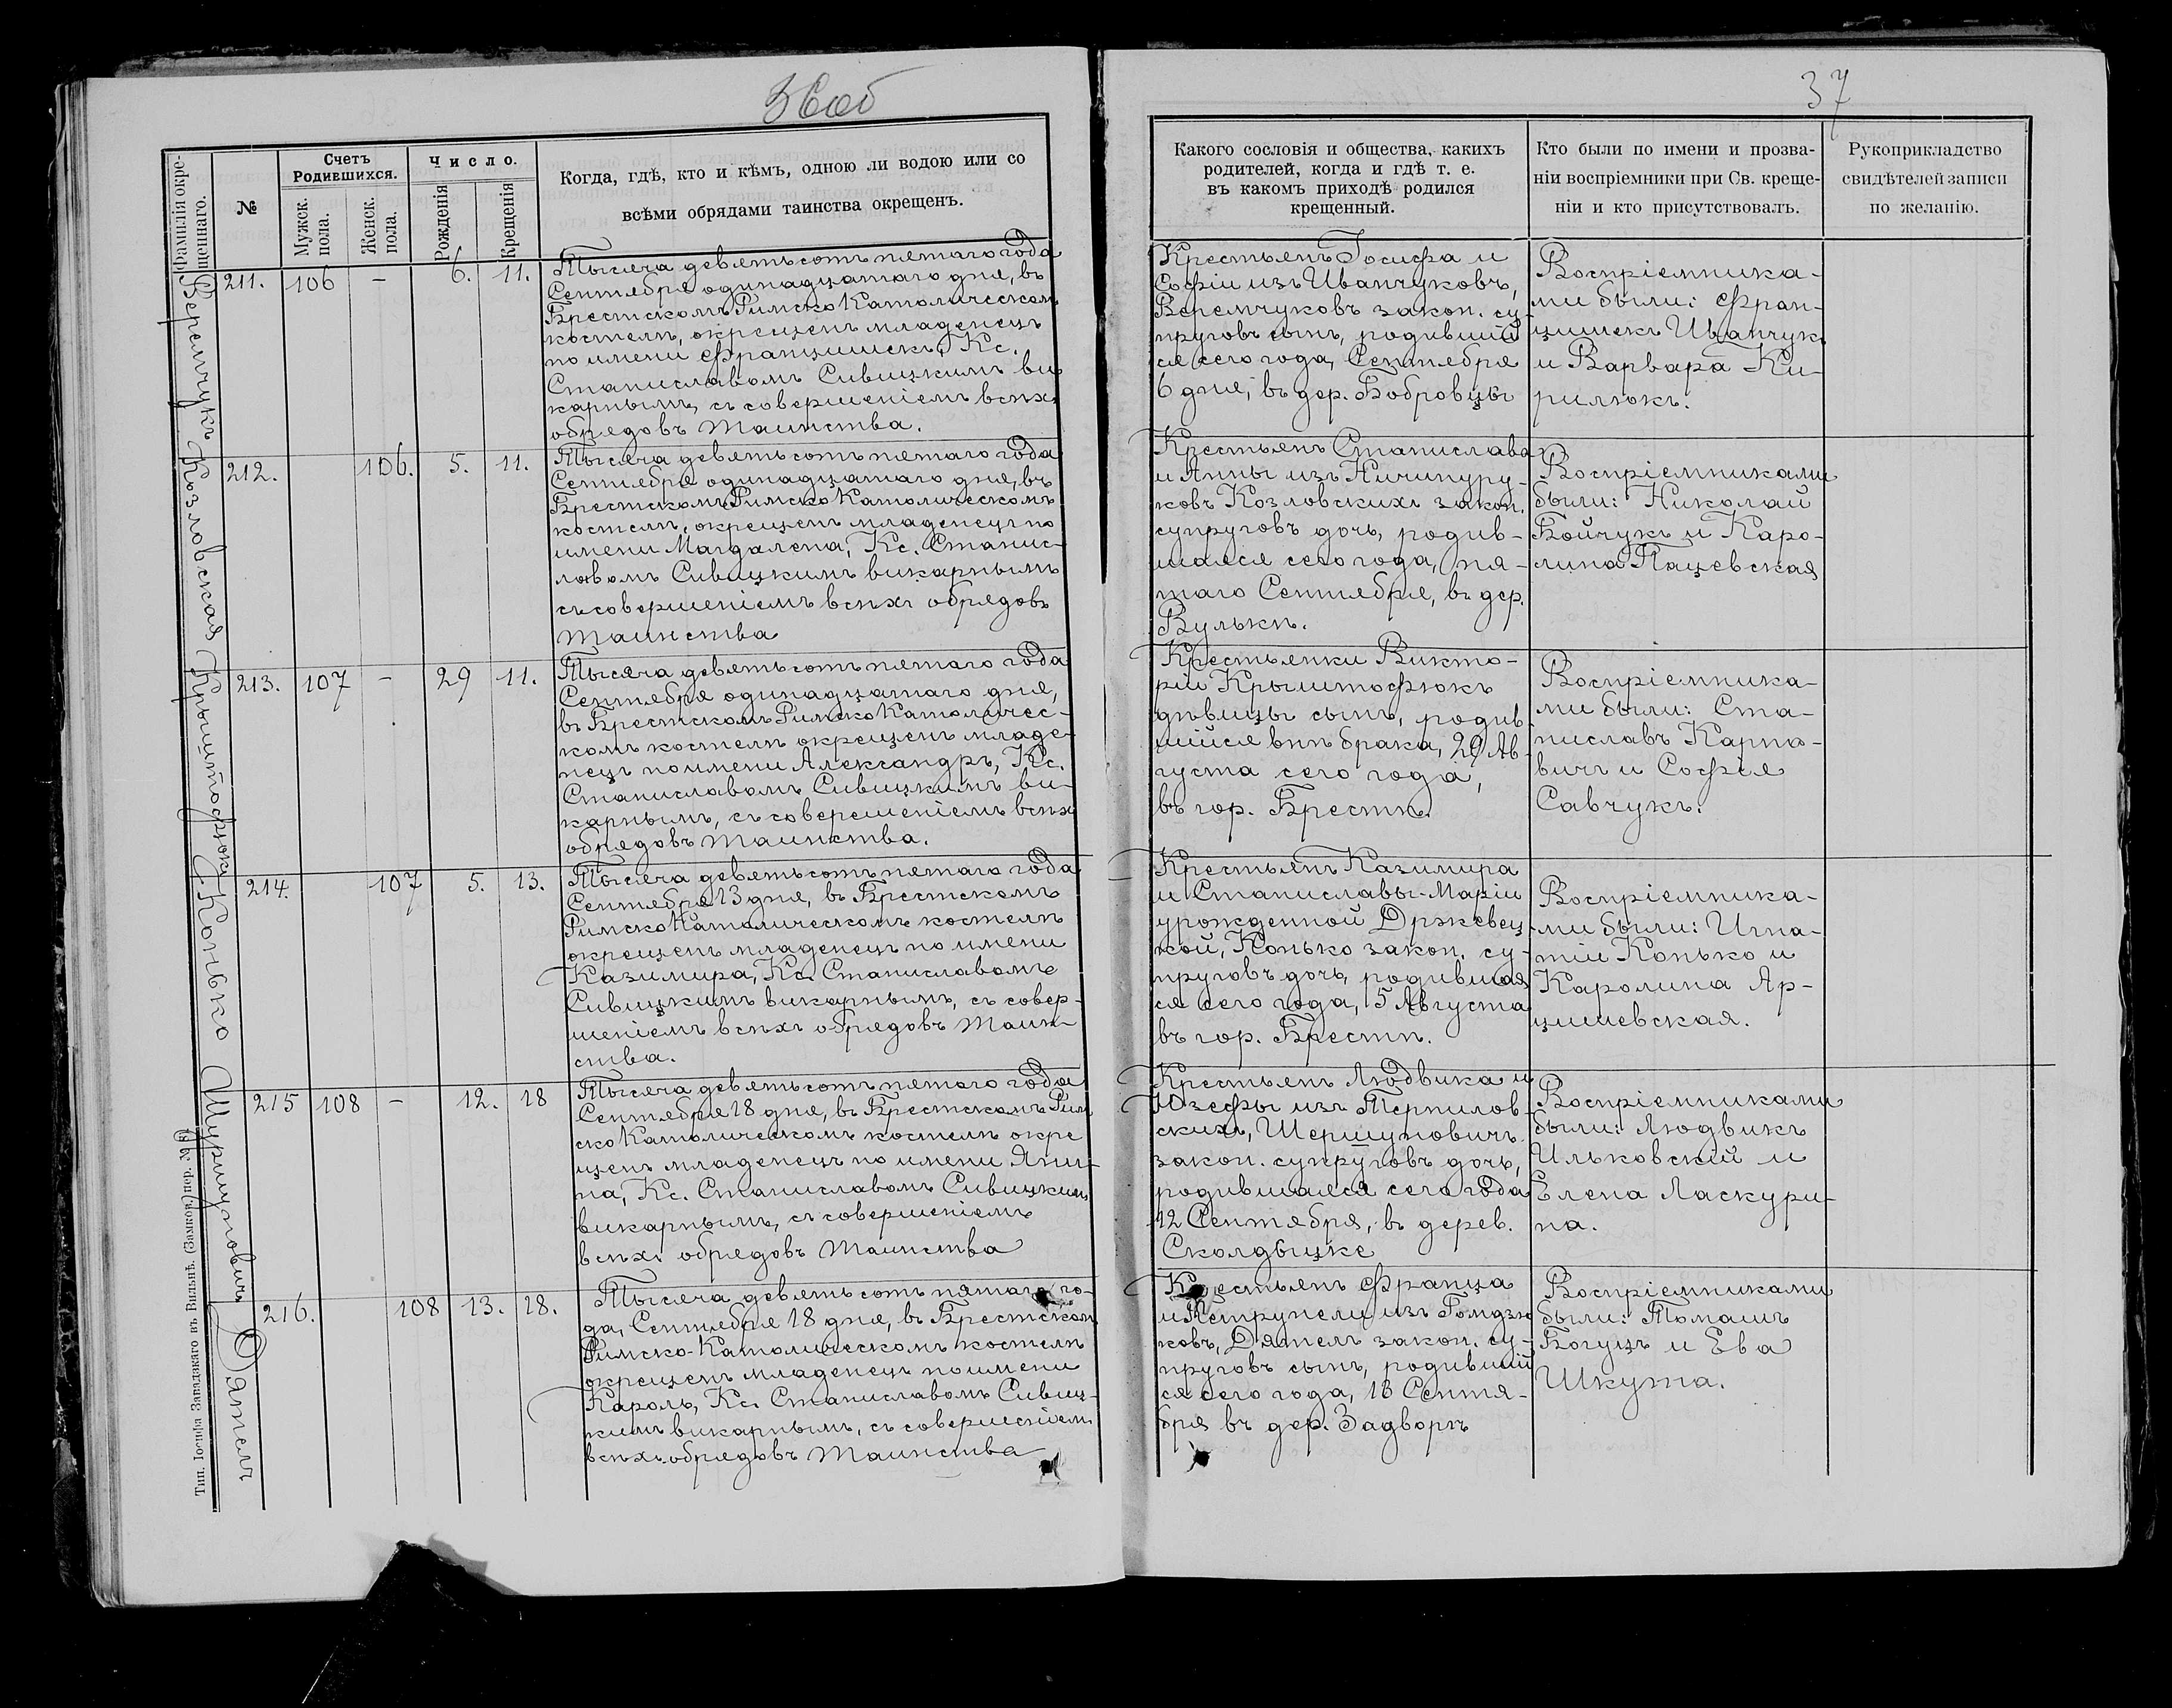 36об
37
Фамилія окре-
щеннаго.
№
Счетъ
Родившихся.
Мужск.
пола.
Женск.
пола.
Число.
Рожденія
Крещенія
Когда, гдѣ, кто и кѣмъ, одною ли водою или со
всѣми обрядами таинства окрещенъ.
Какого сословія и общества, какихъ
родителей, когда и гдѣ т. е.
въ какомъ приходѣ родился
крещенный.
Кто были по имени и прозва-
ніи воспріемники при Св. креще-
ніи и кто присутствовалъ.
Рукоприкладство
свидѣтелей записи
по желанію.
Веремчукъ
211. 106 – 6. 11.
Тысяча девятьсотъ пятаго года
Сентября одинадцатаго дня, въ
Брестскомъ Римско Католическомъ
костелѣ, окрещенъ младенецъ
по имени Францишекъ, Кс.
Станиславомъ Сивицкимъ ви
карнымъ, съ совершеніемъ всѣхъ
обрядовъ таинства.
Крестьянъ Іосифа и
Софіи изъ Иванчуковъ,
Веремчуковъ закон. су-
пруговъ сынъ, родившій
ся сего года, Сентября
6 дня, въ дер. Бобровцы
Воспріемника-
ми были: Фран-
цишекъ Иванчукъ
и Варвара Ки-
рилюкъ.
Козловская
212. 106. 5. 11.
Тысяча девятьсотъ пятаго года
Сентября одинадцатаго дня, въ
Брестскомъ Римско Католическомъ
костелѣ, окрещенъ младенецъ по
имени Магдалена, Кс. Станис-
лавомъ Сивицкимъ викарнымъ
съ совершеніемъ всѣхъ обрядовъ
таинства
Крестьянъ Станислава
и Анны изъ Ничипору-
ковъ Козловскихъ закон.
супруговъ дочь, родив-
шаяся сего года, пя-
таго Сентября, въ дер.
Вулькѣ.
Воспріемниками
были: Николай
Бойчукъ и Каро-
лина Пацевская
Крыштофюкъ
213. 107 – 29 11.
Тысяча девятьсотъ пятаго года
Сентября одинадцатаго дня,
въ Брестскомъ Римско Католичес-
комъ костелѣ окрещенъ младе-
нецъ по имени Александръ, Кс.
Станиславомъ Сивицкимъ ви-
карнымъ, съ совершеніемъ всѣхъ
обрядовъ таинства.
Крестьянки Викто-
ріи Крыштофюкъ
дѣвицы сынъ, родив-
шійся внѣ брака, 29 Ав-
густа сего года,
въ гор. Брестѣ.
Воспріемника-
ми были: Ста-
ниславъ Карпо-
вичъ и Софія
Савчукъ.
Конько
214. 107 5. 13.
Тысяча девятьсотъ пятаго года
Сентября 13 дня, въ Брестскомъ
Римско Католическомъ костелѣ
окрещенъ младенецъ по имени
Казимира, Кс. Станиславомъ
Сивицкимъ викарнымъ, съ совер-
шеніемъ всѣхъ обрядовъ таин-
ства.
Крестьянъ Казимира
и Станиславы-Маріи
урожденной Држевец-
кой, Конько закон. су-
пруговъ дочь, родившая
ся сего года, 5 Августа
въ гор. Брестѣ.
Воспріемника-
ми были: Игна-
тій Конько и
Каролина Ар-
цишевская.
215 108 – 12. 18
Тысяча девятьсотъ пятаго года
Сентября 18 дня, въ Брестскомъ Рим
ско Католическомъ костелѣ окре
щенъ младенецъ по имени Яни-
на, Кс. Станиславомъ Сивицкимъ
викарнымъ, съ совершеніемъ
всѣхъ обрядовъ таинства
Крестьянъ Людвика и
Юзефы изъ Терпилов-
скихъ, Шершуновичъ
закон. супруговъ дочь,
родившаяся сего года
12 Сентября, въ дерев.
Сколдыцке
Воспріемниками
были: Людвикъ
Ильковскій и
Елена Ласкури-
на.
Дятелъ
216. 108 13. 18.
Тысяча девятьсотъ пятаго го-
да, Сентября 18 дня, въ Брестскомъ
Римско-Католическомъ костелѣ
окрещенъ младенецъ по имени
Кароль, Кс. Станиславомъ Сивиц-
кимъ викарнымъ, съ совершеніемъ
всѣхъ обрядовъ таинства
Крестьянъ Франца
и Петрунели изъ Гомдзю
ковъ, Дятелъ закон. су-
пруговъ сынъ, родившій
ся сего года, 13 Сентя-
бря въ дер. Задворѣ
Воспріемниками
были: Томашъ
Богуцъ и Ева
Шкута.
Тип. Іосифа Завадзкаго въ Вильнѣ. (Замков. пер. №